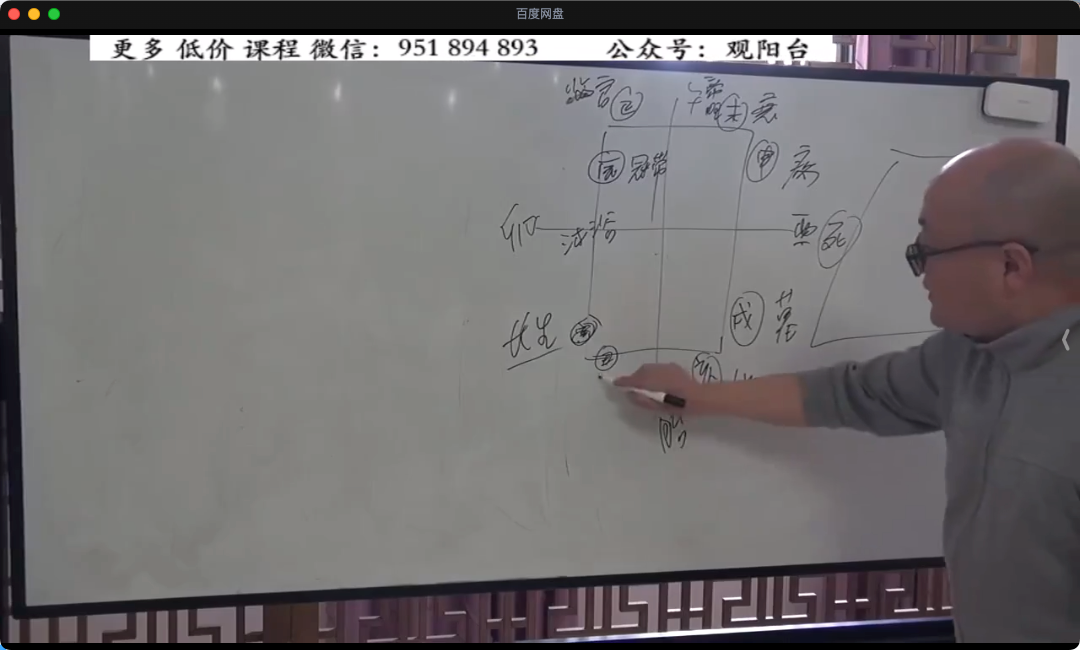 百度网盘
更多 低价 课程 微信：951 894 893 公众号：观阳台
临官 巳 午 帝旺 未 衰
辰 冠带 申 病
卯 沐浴 酉 死
长生 寅 戌 墓
丑 亥
胎